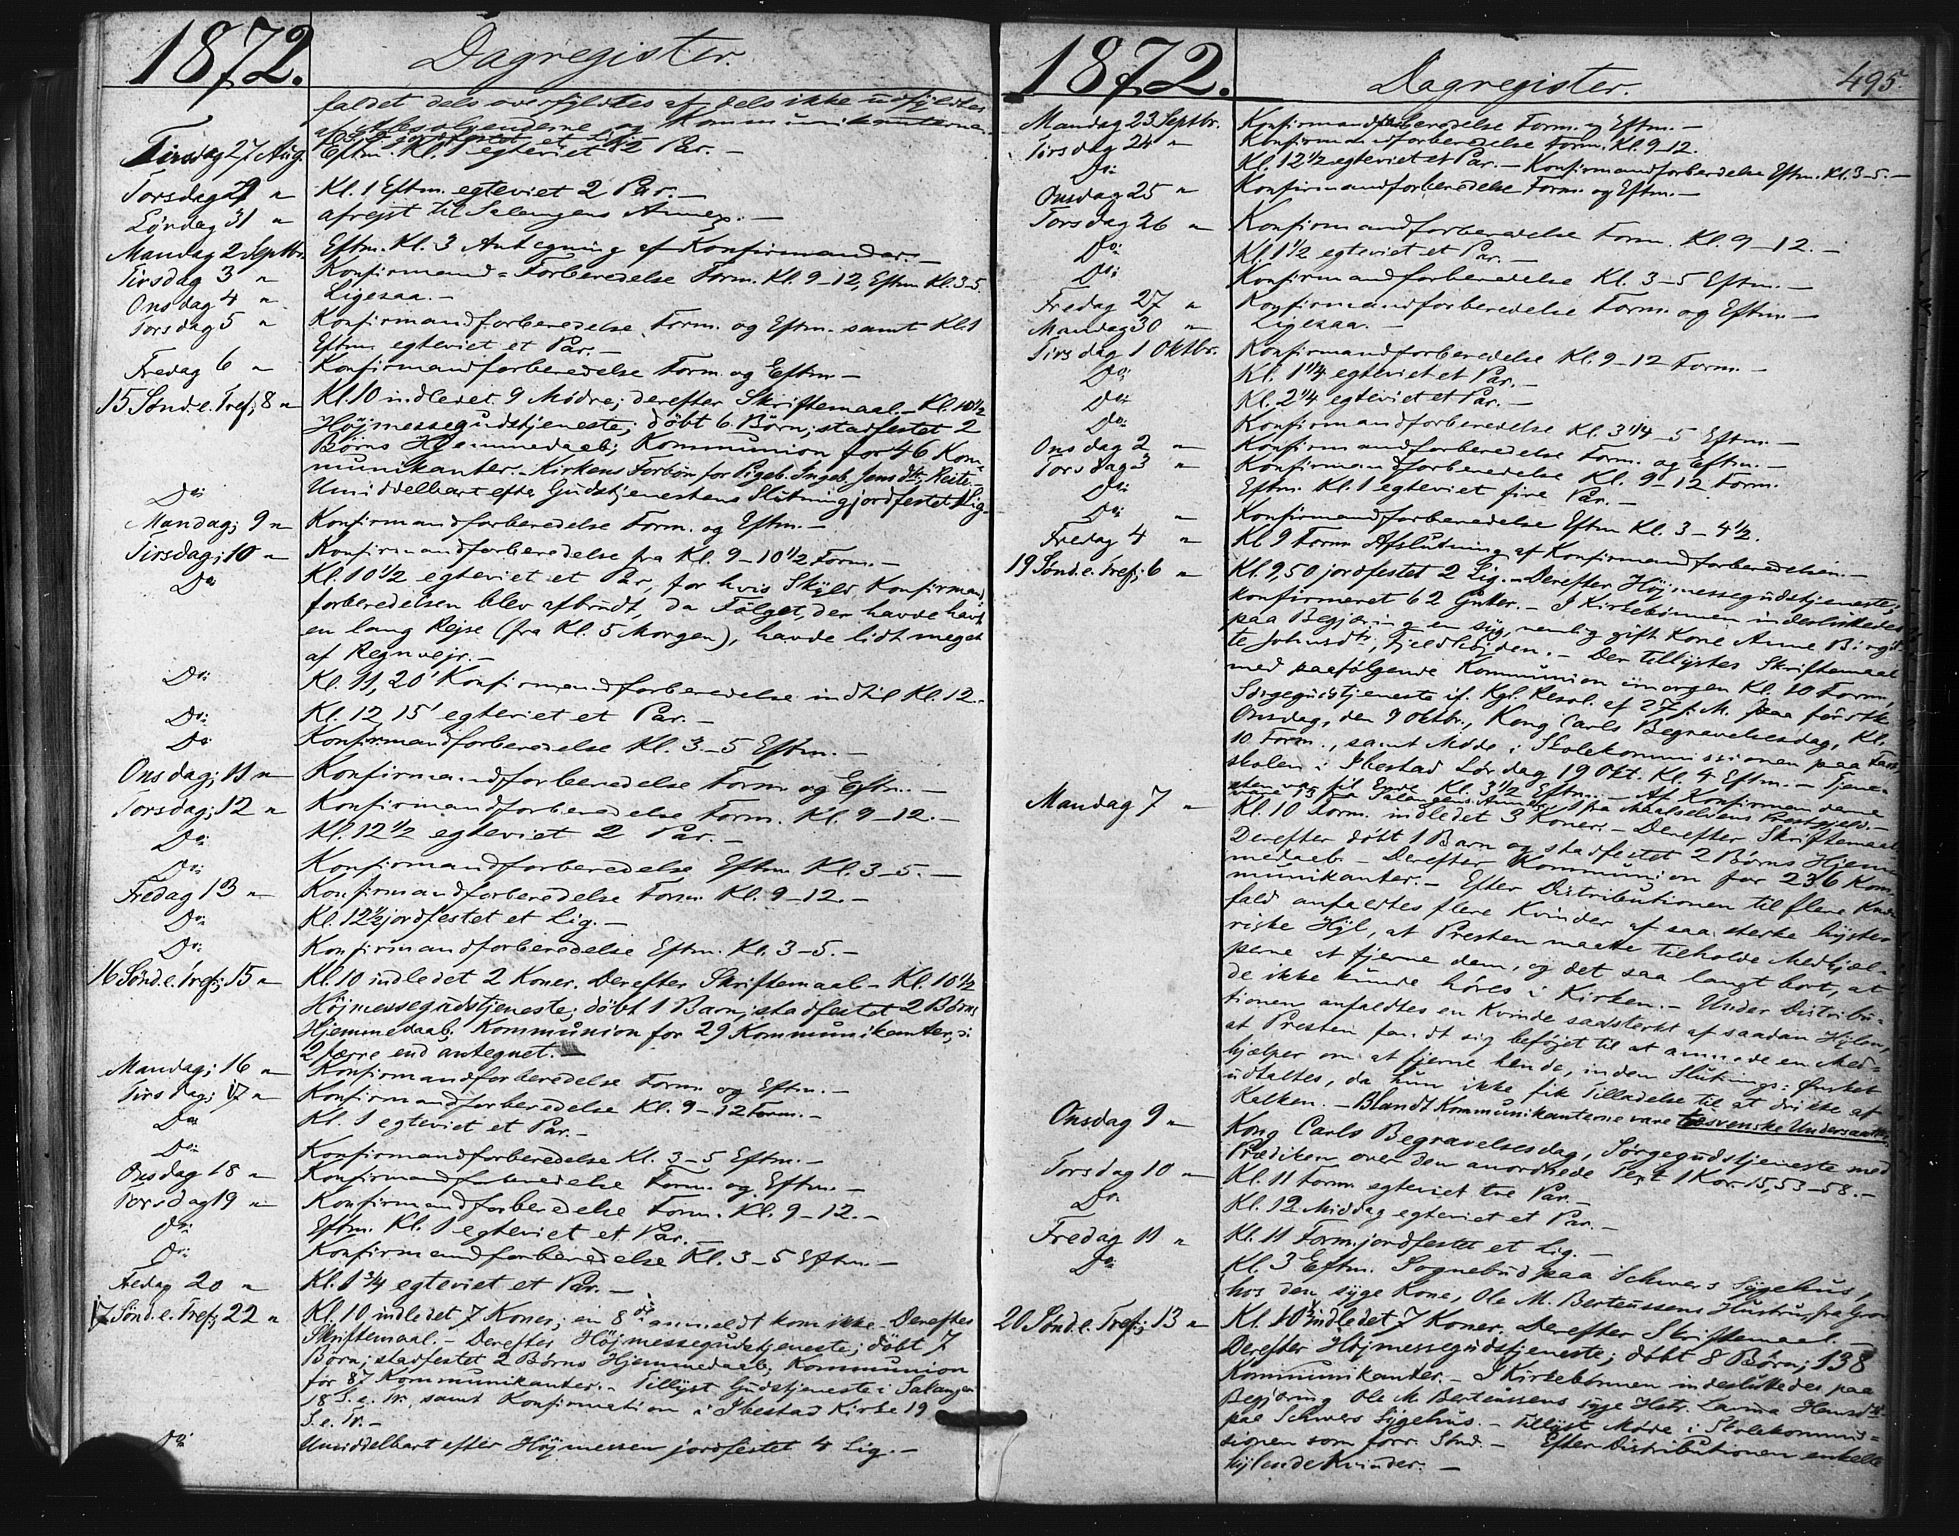 1872.
Dagregister.
faldet dels overfyldtes af, dels ikke udfyldtes
af Absolvenderne og Kommunikanterne.
Tirsdag 27 Aug.
Eftm. Kl. 1 egteviet 2 Par. —
Torsdag 29 "
Kl. 1 Eftm. egteviet 2 Par. —
Lørdag 31 "
afrejst til Salangens Annex. —
Mandag 2 Septbr.
Eftm. Kl. 3 Antegning af Konfirmander. —
Tirsdag 3 "
Konfirmand-Forberedelse Form. Kl. 9–12, Eftm. Kl. 3–5.
Onsdag 4 "
Ligesaa. —
Torsdag 5 "
Konfirmandforberedelse Form. og Eftm. samt Kl. 1
Eftm. egteviet et Par. —
Fredag 6 "
Konfirmandforberedelse Form. og Eftm. —
15 Sønd. e. Tref; 8 "
Kl. 10 indledet 9 Mødre; derefter Skriftemaal. – Kl. 10½
Højmessegudstjeneste; döbt 6 Børn; stadfestet 2
Børns Hjemmedaab; Kommunion for 46 Kom-
munikanter. Kirkens Forbøn for Pigeb. Ingeb. Jensdtr,
Do:
Umiddelbart efter Gudstjenestens Slutning jordfestet 1 Lig. –
Mandag; 9 "
Konfirmandforberedelse Form. og Eftm. —
Tirsdag; 10 "
Konfirmandforberedelse fra Kl. 9–10½ Form. —
Do
Kl. 10½ egteviet et Par, for hvis Skyld Konfirmand-
forberedelsen blev afbrudt, da Følget, der havde havt
en lang Rejse (fra Kl. 5 Morgen), havde lidt meget
af Regnvejr. —
Do:
Kl. 11,20' Konfirmandforberedelse indtil Kl. 12. –
Do:
Kl. 12,15' egteviet et Par. —
Do
Konfirmandforberedelse Kl. 3–5 Eftm. —
Onsdag; 11 "
Konfirmandforberedelse Form. og Eftm. —
Torsdag; 12 "
Konfirmandforberedelse Form. Kl. 9–12. —
Do:
Kl. 12½ egteviet 2 Par. —
Do:
Konfirmandforberedelse Eftm. Kl. 3–5. —
Fredag 13 "
Konfirmandforberedelse Form. Kl. 9–12. —
Do:
Kl. 12½ jordfestet et Lig. —
Do:
Konfirmandforberedelse Eftm. Kl. 3–5. —
16 Sønd. e. Tref; 15 "
Kl. 10 indledet 2 Koner. Derefter Skriftemaal. – Kl. 10½
Højmessegudstjeneste; döbt 1 Barn; stadfestet 2 Børns
Hjemmedaab; Kommunion for 29 Kommunikanter, ɔ:
2 færre end antegnet. —
Mandag; 16 "
Konfirmandforberedelse Form. og Eftm. —
Tirsdag; 17 "
Konfirmandforberedelse Kl. 9–12 Form. —
Do
Kl. 1 egteviet et Par. —
Do:
Konfirmandforberedelse Kl. 3–5 Eftm. —
Onsdag 18 "
Konfirmandforberedelse Form. og Eftm. —
Torsdag 19 "
Konfirmandforberedelse Form. Kl. 9–12. —
Do:
Eftm. Kl. 1 egteviet et Par. —
Do:
Konfirmandforberedelse Kl. 3–5 Eftm. —
Fredag 20 "
Kl. 1¾ egteviet et Par. —
17 Sønd. e. Tref; 22 "
Kl. 10 indledet 7 Koner; en 8de anmeldt kom ikke. Derefter
Skriftemaal. – Derefter Højmessegudstjeneste; döbt 7
Børn; stadfestet 2 Børns Hjemmedaab; Kommunion
for 87 Kommunikanter. – Tillyst Gudstjeneste i Salangen
18 S. e. Tr. samt Konfirmation i Ibestad Kirke 19
S. e. Tr. —
Do:
Umiddelbart efter Højmessen jordfestet 4 Lig. —
1872.
Dagregister.
495.
Mandag 23 Septbr.
Konfirmandforberedelse Form. og Eftm. —
Tirsdag 24 "
Konfirmandforberedelse Form. Kl. 9–12.
Do:
Kl. 12½ egteviet et Par. – Konfirmandforberedelse Eftm. Kl. 3–5. –
Onsdag 25 "
Konfirmandforberedelse Form. og Eftm. —
Torsdag 26 "
Konfirmandforberedelse Form. Kl. 9–12. —
Do:
Kl. 1½ egteviet et Par. —
Do:
Konfirmandforberedelse Kl. 3–5 Eftm. —
Fredag 27 "
Konfirmandforberedelse Form. og Eftm. —
Mandag 30 "
Ligesaa. —
Tirsdag 1 Oktbr.
Konfirmandforberedelse Kl. 9–12 Form. —
Do:
Kl. 1¼ egteviet et Par. —
Do:
Kl. 2¼ egteviet et Par. —
Do:
Konfirmandforberedelse Kl. 3¼–5 Eftm. —
Onsdag 2 "
Konfirmandforberedelse Form. og Eftm. —
Torsdag 3 "
Konfirmandforberedelse Kl. 9–12 Form.
Do:
Eftm. Kl. 1 egteviet fire Par. —
Do: "
Konfirmandforberedelse Eftm Kl. 3–4½.
Fredag 4 "
Kl 9 Form Afslutning af Konfirmandforberedelsen. —
19 Sønd. e. Tref; 6 "
Kl. 9,50 jordfestet 2 Lig. – Derefter Højmessegudstjeneste;
konfirmeret 62 Gutter. – I Kirkebønnen indesluttedes
paa Begjæring en syg, nemlig gift Kone Anne Birgit-
te Johnsdtr, Fjeldhøjden. – Der tillystes Skriftemaal
med paafølgende Kommunion imorgen Kl. 10 Form,
Sørgegudstjeneste if. Kgl. Resol. af 27 f. M. paa førstk.
Onsdag, den 9 Oktbr., Kong Carls Begravelsesdag, Kl.
10 Form., samt Møde i Skolekommissionen paa Fast-
skolen i Ibestad Lørdag 19 Okt. Kl. 4 Eftm. – Tjene-
sten var til Ende Kl. 3½ Eftm. – Af Konfirmanderne
vare fra Salangens Annex, 1 fra Maalselvens Prestgjeld. –
Mandag 7 "
Kl. 10 Form. indledet 3 Koner. – Derefter Skriftemaal
Derefter døbt 1 Barn og stadfestet 2 Børns Hjem-
medaab. – Derefter Kommunion for 236 Kom-
munikanter. – Efter Distributionen til flere Knæ-
fald anfaldtes flere Kvinder af saa sterke hyste-
riske Hyl, at Presten maatte tilholde Medhjæl-
perne at fjerne dem, og det saa langt bort, at
de ikke kunde høres i Kirken. – Under Distribu-
tionen anfaldtes en Kvinde saa sterkt af saadan Hylen,
at Presten fandt sig beføjet til at anmode en Med-
hjælper om at fjerne hende, inden Slutnings-Ønsket
udtaltes, da hun ikke fik Tilladelse til at drikke af
Kalken. – Blandt Kommunikanterne vare to svenske Undersaatter.
Onsdag 9 "
Kong Carls Begravelsesdag, Sørgegudstjeneste med
Prædiken over den anordnede Text 1 Kor. 15, 53–58. —
Torsdag 10 "
Kl. 11 Form egteviet tre Par. —
Do
Kl. 12 Middag egteviet et Par. —
Fredag 11 "
Kl. 11 Form. jordfestet et Lig. —
Do:
Kl. 3 Eftm. Sognebud paa Schwers Sygehus,
hos den syge Kone, Ole M. Berteussens Hustru, fra
20 Sønd. e. Tref; 13 "
Kl. 10 indledet 7 Koner. Derefter Skriftemaal. —
Derefter Højmessegudstjeneste; døbt 8 Børn; 138
Kommunikanter. – I Kirkebønnen indesluttedes paa
Begjæring Ole M. Berteussens syge Hstr. Lavina Hansdtr
paa Schwers Sygehus. – Tillyst Møde i Skolekommis-
sionen som forr. Sønd. – Efter Distributionen enkelte
hylende Kvinder. —